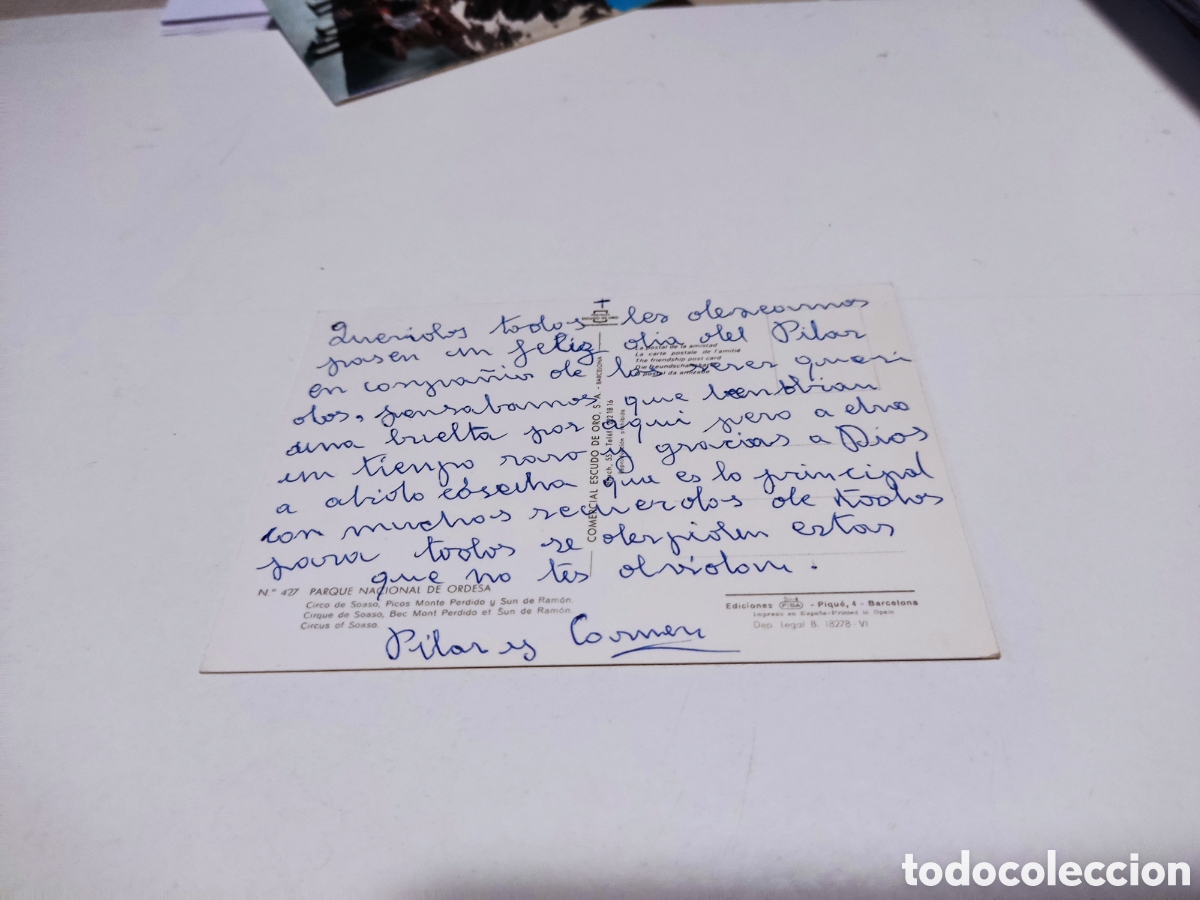 +
Queridos todos les deseamos
pasen un feliz dia del Pilar
en compañia de los seres queri
dos, pensabamos que bendrian
una buelta por aqui pero a
un tiempo raro y gracias a Dios
a abido cosecha que es lo principal
con muchos recuerdos de todos
para todos se despiden estas
que no les olvidan.
Pilar y Carmen
La postal de la amistad
La carte postale de l'amitié
The friendship post card
Die freundschaft
A postal da amizade
COMERCIAL ESCUDO DE ORO, S.A. - BARCELONA
N.º 427 PARQUE NACIONAL DE ORDESA
Circo de Soaso, Picos Monte Perdido y Sun de Ramón.
Cirque de Soaso, Bec Mont Perdido et Sun de Ramón.
Circus of Soaso.
Ediciones FISA - Piqué, 4 - Barcelona
Impreso en España-Printed in Spain
Dep. Legal B. 18278-VI
todocoleccion